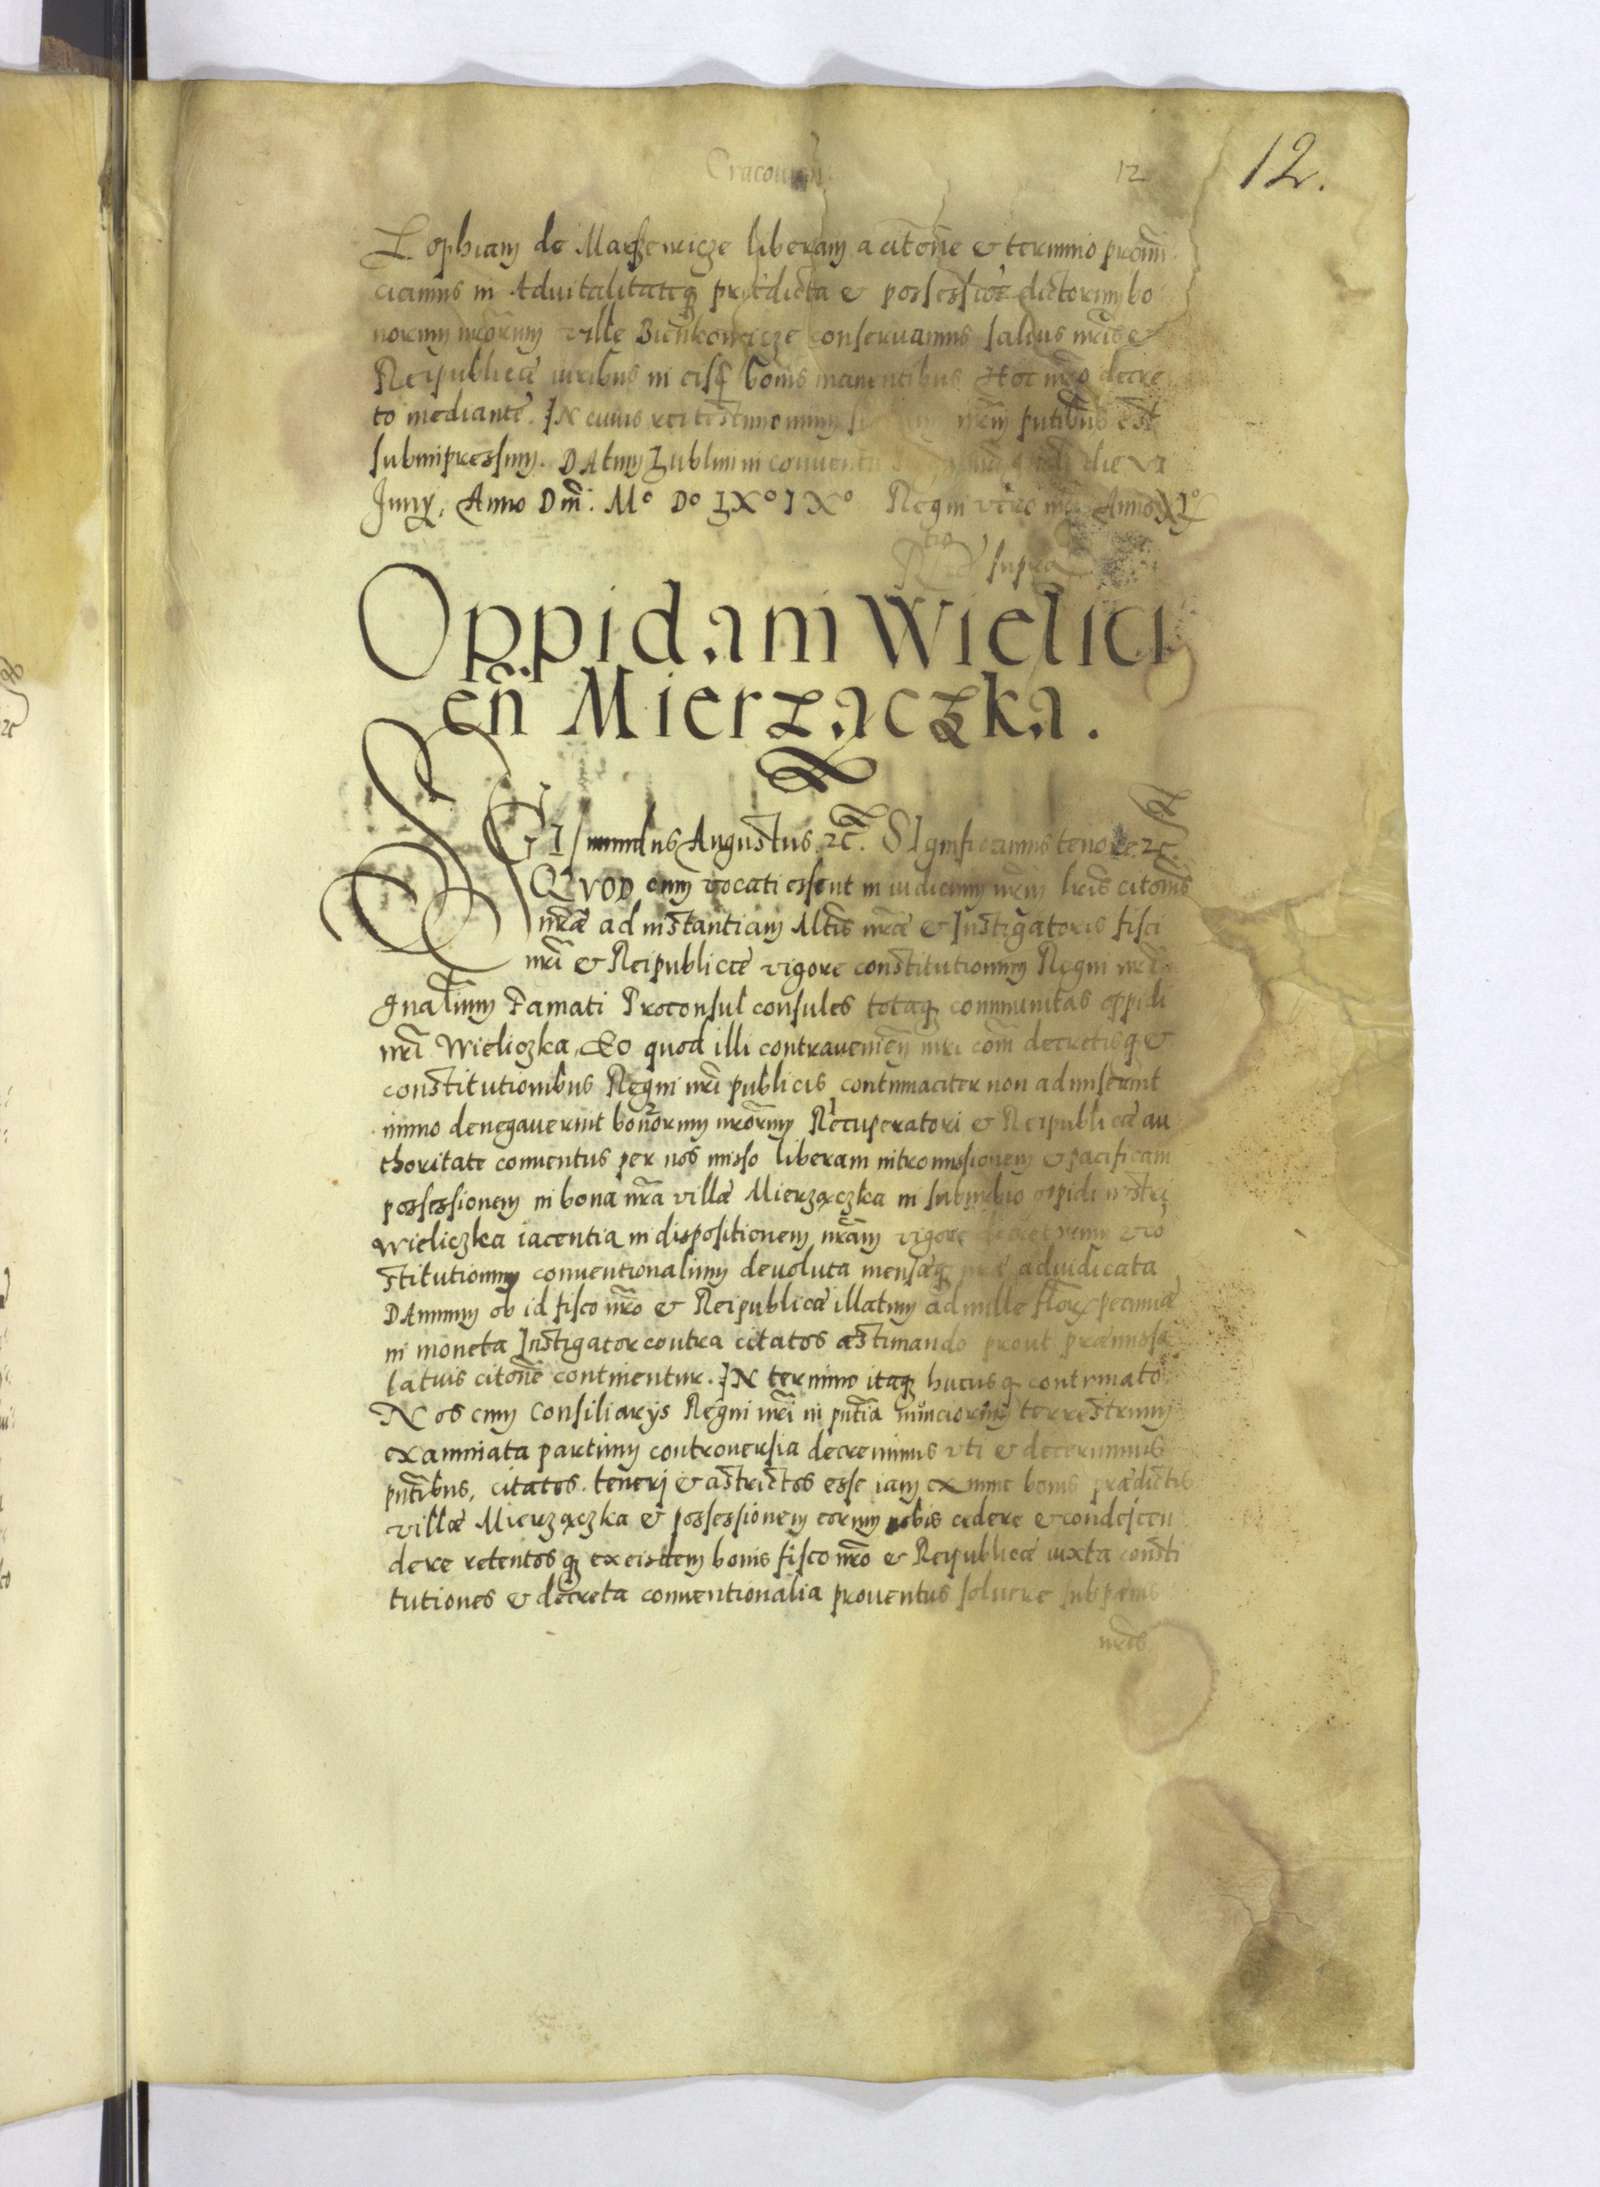 Cracouien
12
12.
Zophiam de Marszewicze liberam a citone & termino pronun
ciamus in Aduitalitateq prædicta & possessioe dictorum bo
norum nrorum ville Bieńkowicze conseruamus saluis nris &
Reipublicæ iuribus in eisq bonis manentibus Hoc nro decre
to mediante. IN cuius rei testimonium nrm pntibus est
submipressum. DAtum Lublini in conuentu die VI
Junij, Anno Dni: Mo Do LXo IXo Regni vero nri Anno XLo
Rtio supra
Oppidani Wielici
eñ Mierzączka.
SIGIsmundus Augustus. 2c. SIgnificamus tenore. 2c.
QVOD cum vocati essent in iudicium nrm lris citonis
nræ ad instantiam Mtis nræ & Instigatoris fisci
nri & Reipublicæ vigore constitutionum Regni nri
gnalium Famati Proconsul consules totaq communitas oppidi
nri Wieliczka, Eo quod illi contrauenien nri com decretisq &
constitutionibus Regni nri publicis contumaciter non admiserint
immo denegauerint bonorum nrorum Recuperatori & Reipublicæ au
thoritate conuentus per nos misso liberam intromissionem & pacificam
possessionem in bona nra villæ Mierzączka in suburbio oppidi nostri
Wieliczka iacentia in dispositionem nram vigore
stitutionum conuentionalium deuoluta mensæq adiudicata
DAmnum ob id fisco nro & Reipublicæ illatum ad mille flor pecuniæ
in moneta Instigator contra citatos æstimando prout præmissa
latius citone continentur. IN termino itaq hucusq continuato
Nos cum Consiliarijs Regni nri in pntia nunciorum terrestrium
examinata partium controuersia decreuimus vti & decernimus
pntibus, citatos teneri & astrictos esse iam ex nunc bonis prædictis
villæ Mierzączka & possessionem eorum nobis cedere & condescen
dere retentosq ex eisdem bonis fisco nro & Reipublicæ iuxta consti
tutiones & decreta conuentionalia prouentus soluere sub pœnis
nris